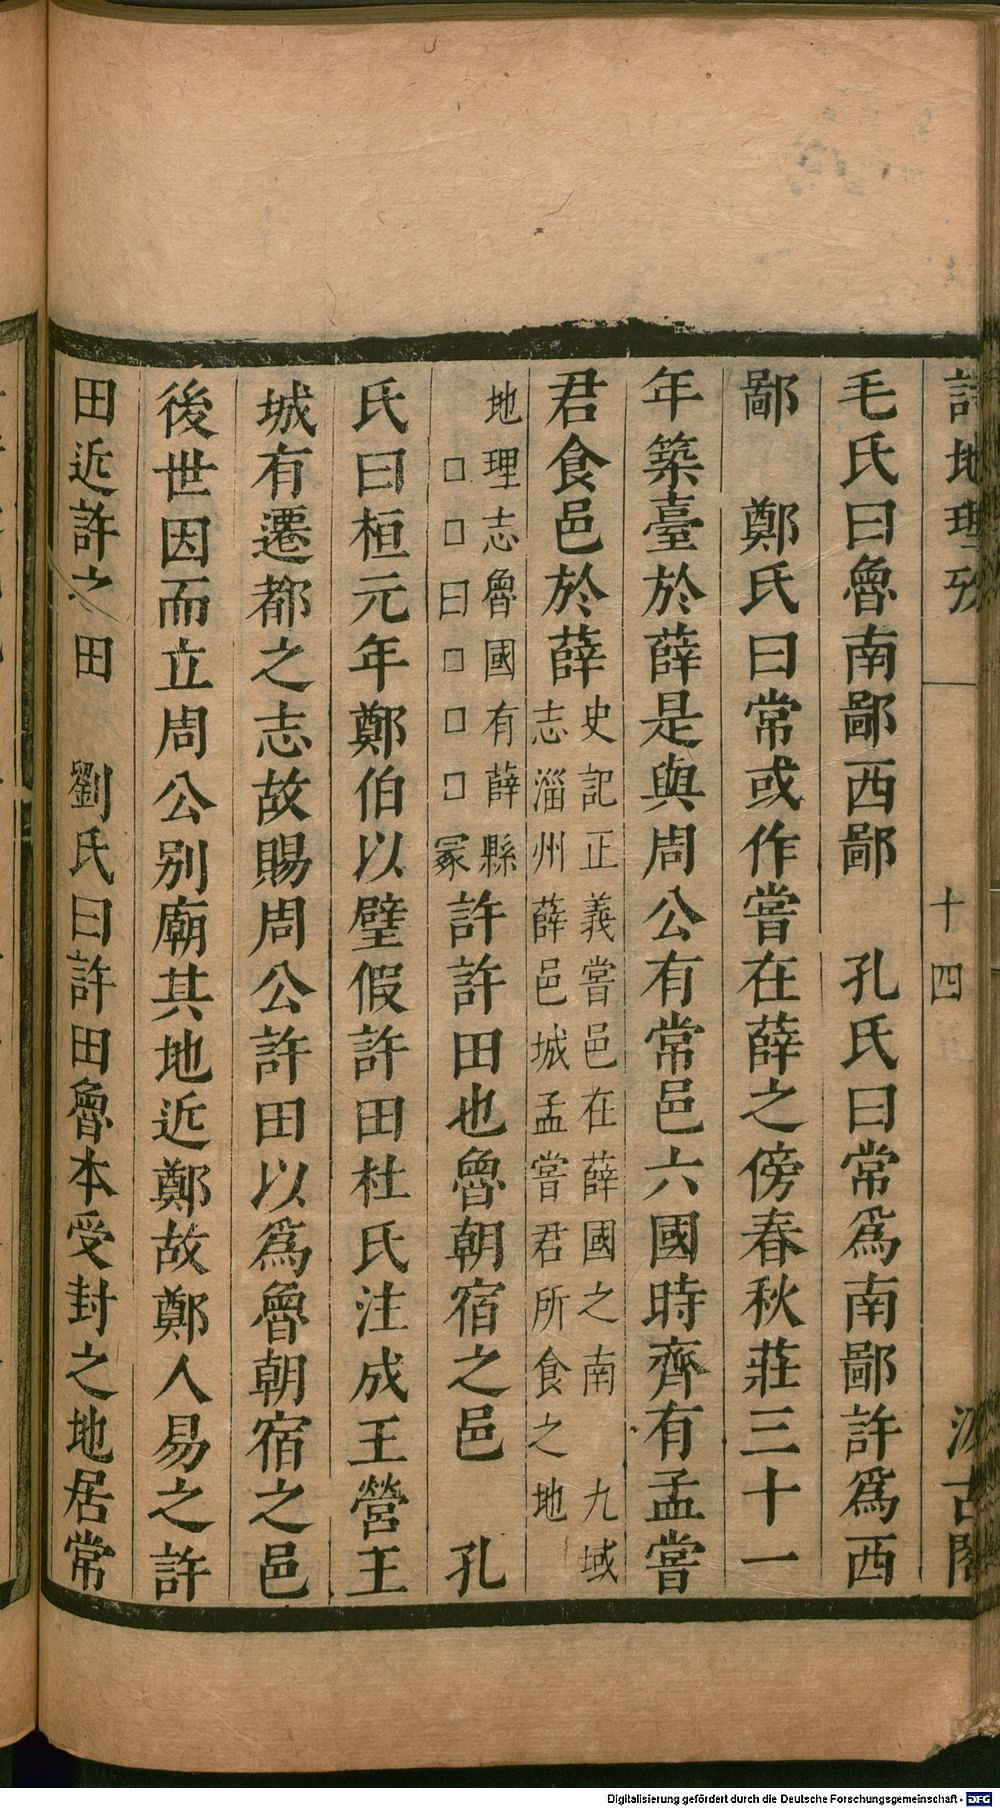 詩地理攷 十四 汲古閣
毛氏曰魯南鄙西鄙　孔氏曰常爲南鄙許爲西
鄙　鄭氏曰常或作嘗在薛之傍春秋莊三十一
年築臺於薛是與周公有常邑六國時齊有孟嘗
君食邑於薛史記正義嘗邑在薛國之南　九域
志淄州薛邑城孟嘗君所食之地
地理志魯國有薛縣
□□曰□□□冢
許許田也魯朝宿之邑　孔
氏曰桓元年鄭伯以璧假許田杜氏注成王營王
城有遷都之志故賜周公許田以爲魯朝宿之邑
後世因而立周公别廟其地近鄭故鄭人易之許
田近許之田　劉氏曰許田魯本受封之地居常
Digitalisierung gefördert durch die Deutsche Forschungsgemeinschaft - DFG